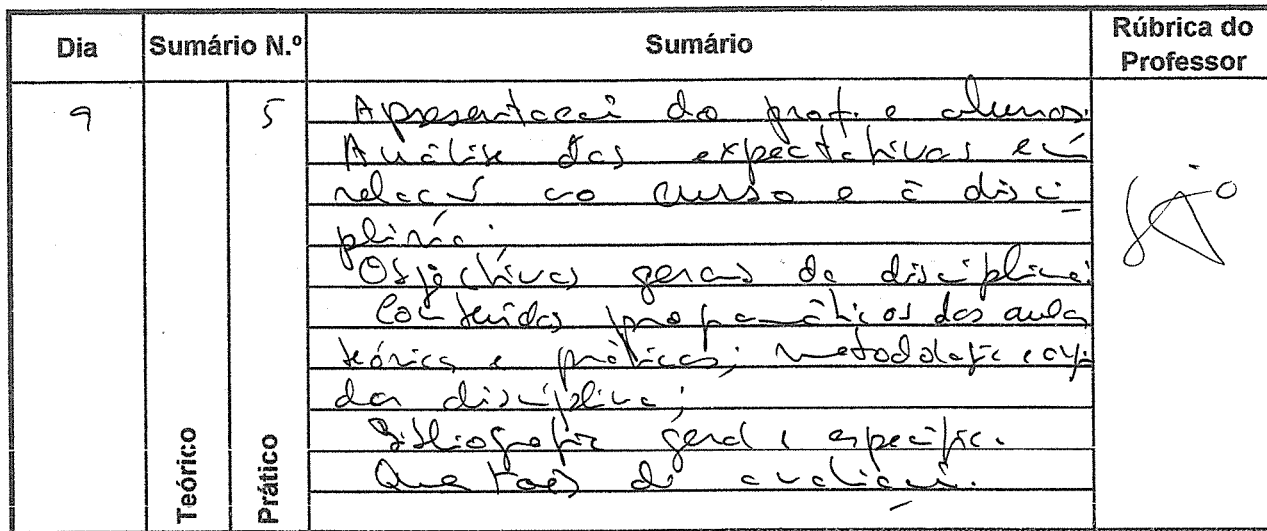 Dia Sumário N.º Sumário Rúbrica do Professor
9 5 Apresentação do prof. e alunos.
Análise das expectativas em
relação ao curso e à disci-
plina;
Objectivos gerais da disciplina;
Conteúdos programáticos das aulas
teóricas e práticas; metodologia
da disciplina;
Bibliografia geral e específica.
Questões de avaliação.
Teórico
Prático